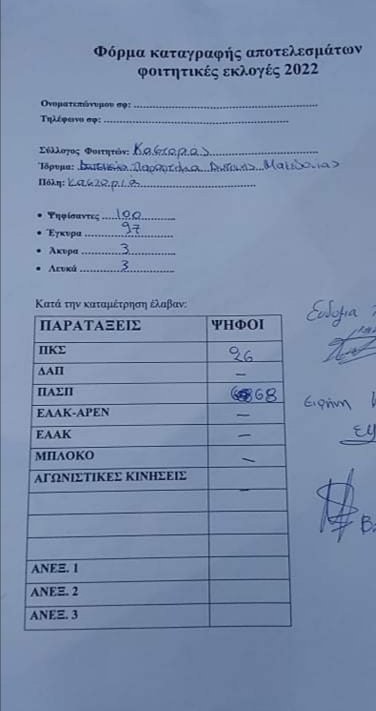 Φόρμα καταγραφής αποτελεσμάτων
φοιτητικές εκλογές 2022
Ονοματεπώνυμου σφ:
Τηλέφωνο σφ:
Σύλλογος Φοιτητών: Καστοριας
Ίδρυμα: Παραρτημα Δυτικής Μακεδονίας
Πόλη: Καστοριά
• Ψηφίσαντες 100
• Έγκυρα 97
• Άκυρα 3
• Λευκά 3
Κατά την καταμέτρηση έλαβαν:
ΠΑΡΑΤΑΞΕΙΣ ΨΗΦΟΙ
ΠΚΣ 26
ΔΑΠ –
ΠΑΣΠ 68
ΕΑΑΚ-ΑΡΕΝ –
ΕΑΑΚ –
ΜΠΛΟΚΟ –
ΑΓΩΝΙΣΤΙΚΕΣ ΚΙΝΗΣΕΙΣ –
ΑΝΕΞ. 1
ΑΝΕΞ. 2
ΑΝΕΞ. 3
Ευδοξία
Ειρήνη